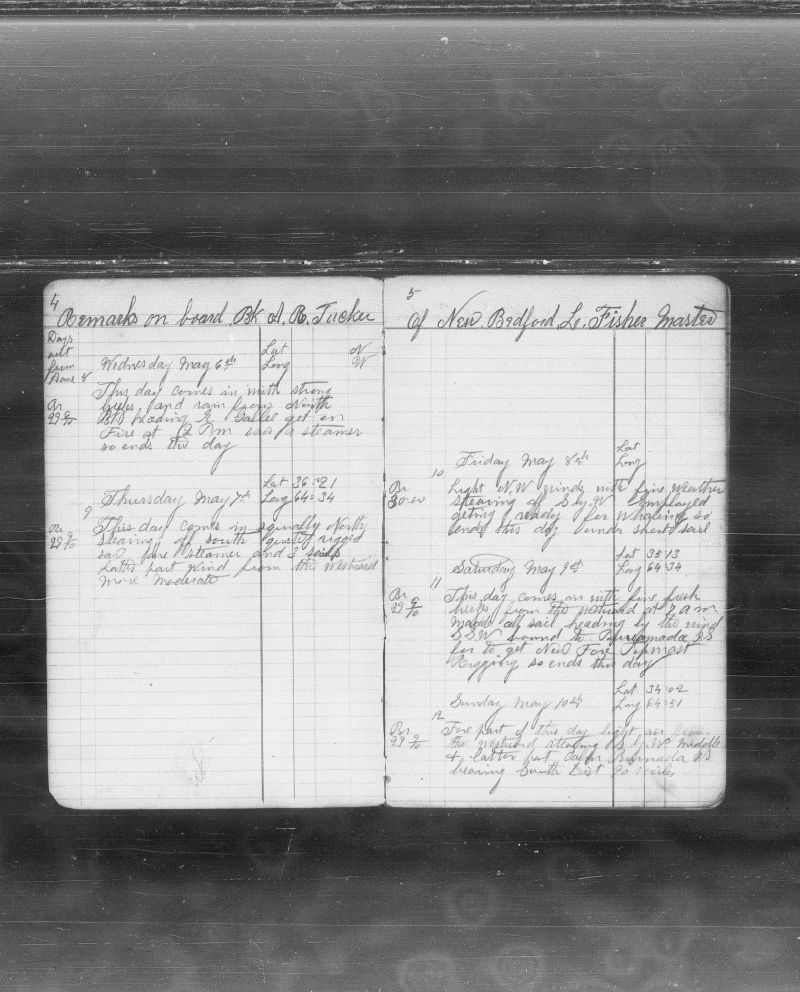 4
Remarks on board Bk A. R. Tucker
Days
out
from
Home 8
Wednesday May 6th
Lat N
Long W
This day comes in with strong
Br breeze and rain from North
29 9/10 Bk heading E Galler get on
Fire at 12 P.m saw a steamer
so ends this day
Lat 36=21
9 Thursday May 7th Long 64=34
Br This day comes in squally North
29 9/10 stearing of south quietly rigged
saw one steamer and 3 sails
Latter part wind from the Westward
More moderate
5
Of New Bedford L. Fisher Master
Lat
10 Friday May 8th Long
Br light N.W winds with fine weather
30.00 stearing of S by W Employed
geting ready for whaling so
ends this day under short sail
Lat 35=13
Saturday May 9th Long 64=34
11
Br This day comes in with fine fresh
29 9/10 breeze from the westward at 7 a m
made all sail heading by the wind
S S W bound to Buremada IS
for to get New Fore Topmost
Rigging so ends this day
Lat 34=02
Sunday May 10th Long 64=51
12
Br Fore part of this day light air from
29 9/10 the westward stearing S by W middle
& latter part calm Burmada IS
bearing South Dist 90 Miles